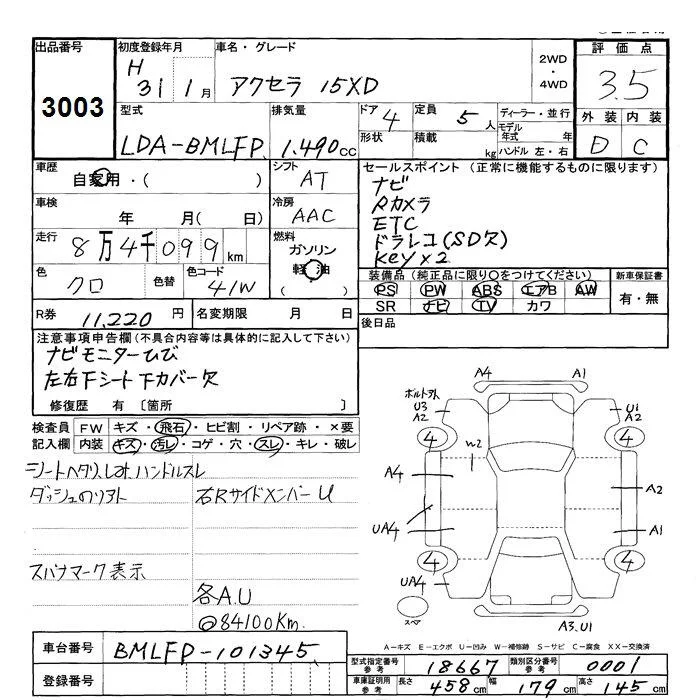 出品番号 初度登録年月 車名・グレード 2WD ・ 4WD 評価点
3003 H 31年 1月 アクセラ 15XD 3.5
型式 排気量 ドア 4 定員 5人 ディーラー・並行 外装 内装
LDA-BMLFP 1.490cc 形状 積載 kg モデル年式 年 ハンドル 左・右 D C
車歴 自家用・( ) シフト AT セールスポイント (正常に機能するものに限ります)
車検 年 月( 日) 冷房 AAC ナビ
Rカメラ
ETC
走行 8万4千099km 燃料 ガソリン 軽油 ( ) ドラレコ(SD欠)
Key×2
色 クロ 色替 色コード 41W 装備品 (純正品に限り○をつけてください) 新車保証書
PS PW ABS エアB AW 有・無
SR ナビ TV カワ
R券 11,220円 名変期限 月 日 後日品
注意事項申告欄 (不具合内容等は具体的に記入して下さい)
ナビモニターひび
左右下シート下カバー欠
修復歴 有 〔箇所 〕
検査員 FW キズ・飛石・ヒビ割・リペア跡・×要
記入欄 内装 キズ・汚レ・コゲ・穴・スレ・キレ・破レ
シートヘタリ、シワオ ハンドルスレ
ダッシュのリヲト 右Rサイドメンバー U
スパナマーク表示
各A.U
@84100Km.
A4 A1
ボルト外
U3 A2 U1 A2
4 4
W2
A4 A2
UA4 A1
4 4
UA4
スペア A3.U1
A-キズ E-エクボ U-凹み W-補修跡 S-サビ C-腐食 XX-交換済
車台番号 BMLFP-101345
型式指定番号 参考 18667 類別区分番号 参考 0001
登録番号 車庫証明用 参考 長さ 458cm 幅 179cm 高さ 145cm